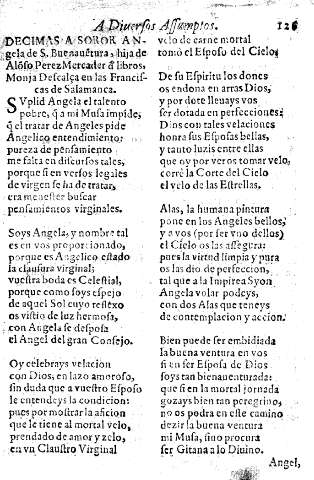 A Diuersos Assumptos. 126
DECIMAS A SOROR AN-
gela de S. Buenauētura, hija de
Alōso Perez Mercader ď libros,
Monja Descalça en las Francis-
cas de Salamanca.
SVplid Angela el talento
pobre, q̄ a mi Musa impide,
q̄ el tratar de Angeles pide
Angelico entendimiento:
pureza de pensamiento
me falta en discursos tales,
porque si en versos legales
de virgen se ha de tratar,
era menester buscar
pensamientos virginales.
Soys Angela, y nombre tal
es en vos proporcionado,
porque es Angelico estado
la clausura virginal;
vuestra boda es Celestial,
porque como soys espejo
de aquel Sol cuyo reflexo
os vistio de luz hermosa,
con Angela se desposa
el Angel del gran Consejo.
Oy celebrays velacion
con Dios, en lazo amoroso,
sin duda que a vuestro Esposo
le entendeys la condicion:
pues por mostrar la aficion
que le tiene al mortal velo,
prendado de amor y zelo,
en vn Claustro Virginal
velo de carne mortal
tomó el Esposo del Cielo.
De su Espiritu los dones
os endona en arras Dios,
y por dote lleuays vos
ser dotada en perfecciones:
Dios con tales velaciones
honra sus Esposas bellas,
y tanto luzis entre ellas
que oy por veros tomar velo,
corrè la Corte del Cielo
el velo de las Estrellas.
Alas, la humana pintura
pone en los Angeles bellos,
y a vos (por ser vno dellos)
el Cielo os las assegura:
pues la virtud limpia y pura
os las dio de perfeccion,
tal que a la Impirea Syon
Angela volar podeys,
con dos Alas que teneys
de contemplacion y accion.
Bien puede ser embidiada
la buena ventura en vos
si en ser Esposa de Dios
soys tan bienauenturada:
que si en la mortal jornada
gozays bien tan peregrino,
no os podra en este camino
dezir la buena ventura
mi Musa, sino procura
ser Gitana a lo Diuino.
Angel,